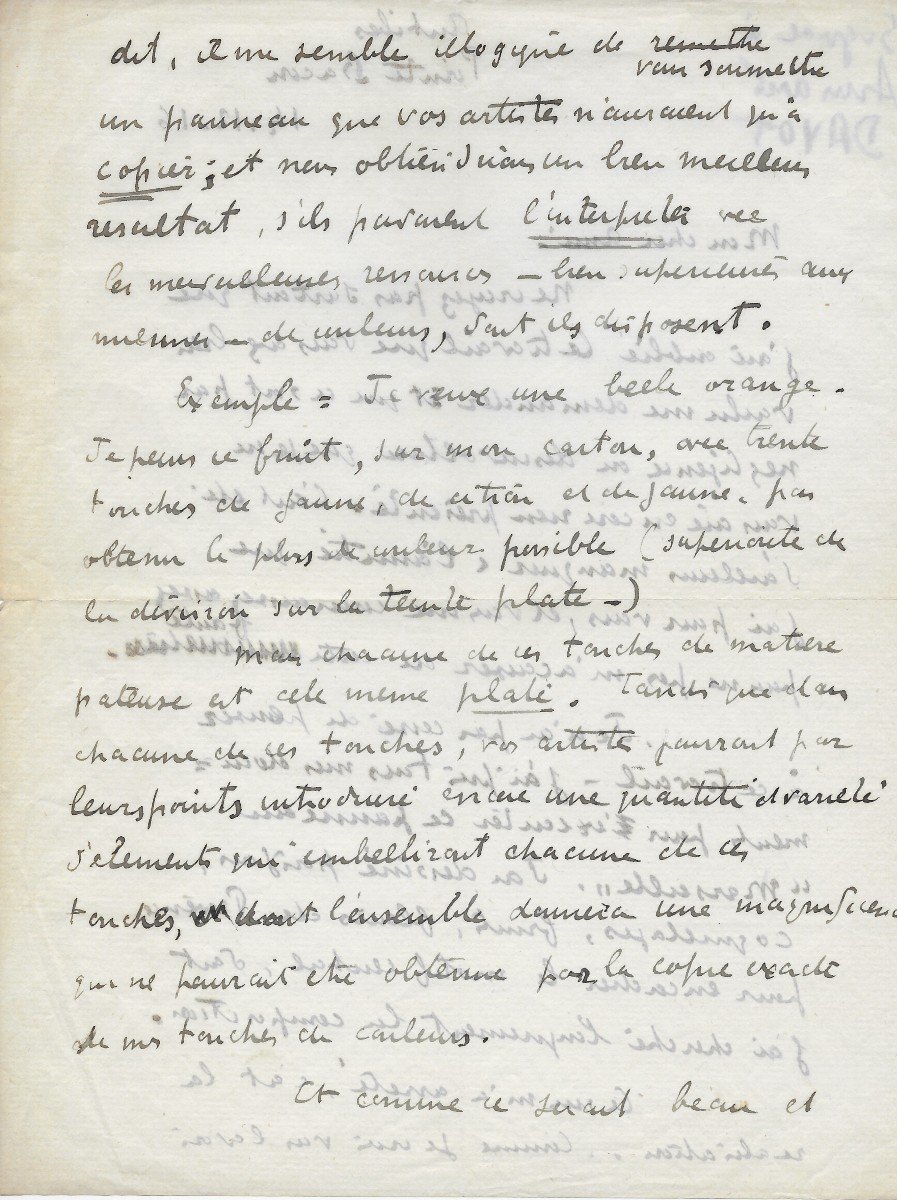 dit, il me semble illogique de remettre
vous soumettre
un panneau que vos artistes n'auraient qu'à
copier; et nous obtiendrions un bien meilleur
resultat, s'ils pouvaient l'interpreter vec
les merveilleuses ressources – bien superieures aux
miennes – de couleurs, dont ils disposent.
Exemple = Je veux une belle orange.
Je peins ce fruit, sur mon carton, avec trente
touches de jaune, de citron et de jaune, pas
obtenu le plus de couleur possible (superiorite de
la division sur la teinte plate –)
Mais chacune de ces touches de matiere
pateuse est elle meme plate. Tandis que dans
chacune de ces touches, vos artistes pourront par
leurs points introduire encore une quantité et varieté
d'elements qui embelliront chacune de ces
touches, dont l'ensemble donnera une magnificence
qui ne pourrait etre obtenue par la copie exacte
de mes touches de couleurs.
Et comme ce serait beau et